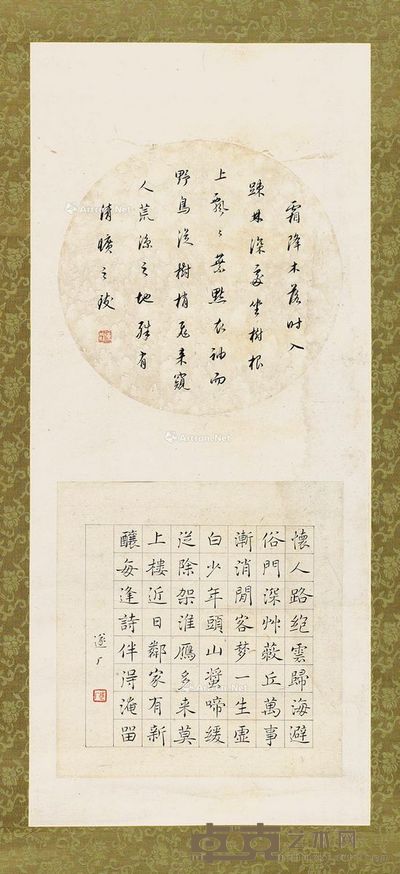 霜降木落时入
踈林深處坐樹根
上飄〻葉點衣袖而
野鳥從樹梢飛來窺
人荒凉之地殊有
清曠之致
懷人路絕雲歸海避
俗門深艸蔽丘萬事
漸消閒客夢一生虛
白少年頭山蛩啼緩
從除架淮鴈多來莫
上樓近日鄰家有新
釀每逢詩伴得淹留
ArtronNet
ArtronNet
艺术网